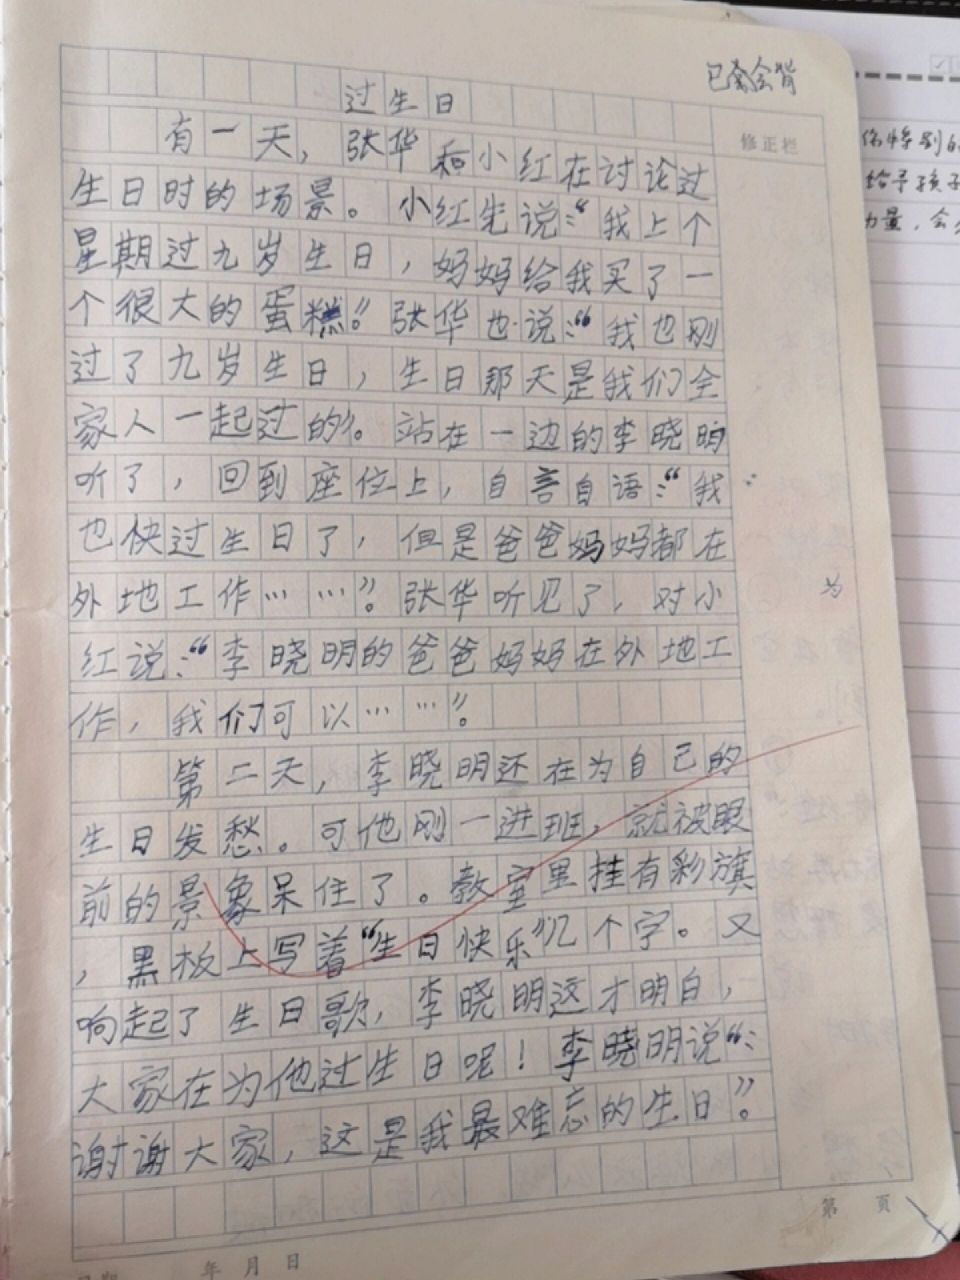 已查会背
过生日
修正栏
有一天，张华和小红在讨论过
生日时的场景。小红先说：“我上个
星期过九岁生日，妈妈给我买了一
个很大的蛋糕。”张华也说：“我也刚
过了九岁生日，生日那天是我们全
家人一起过的”。站在一边的李晓明
听了，回到座位上，自言自语：“我
也快过生日了，但是爸爸妈妈都在
外地工作……”。张华听见了，对小
红说：“李晓明的爸爸妈妈在外地工
作，我们可以……”。
第二天，李晓明还在为自己的
生日发愁。可他刚一进班，就被眼
前的景象呆住了。教室里挂有彩旗
，黑板上写着“生日快乐”几个字。又
响起了生日歌，李晓明这才明白，
大家在为他过生日呢！李晓明说“：
谢谢大家，这是我最难忘的生日”。
为
第 页
年 月 日
你特别的
给予孩子
力量，会